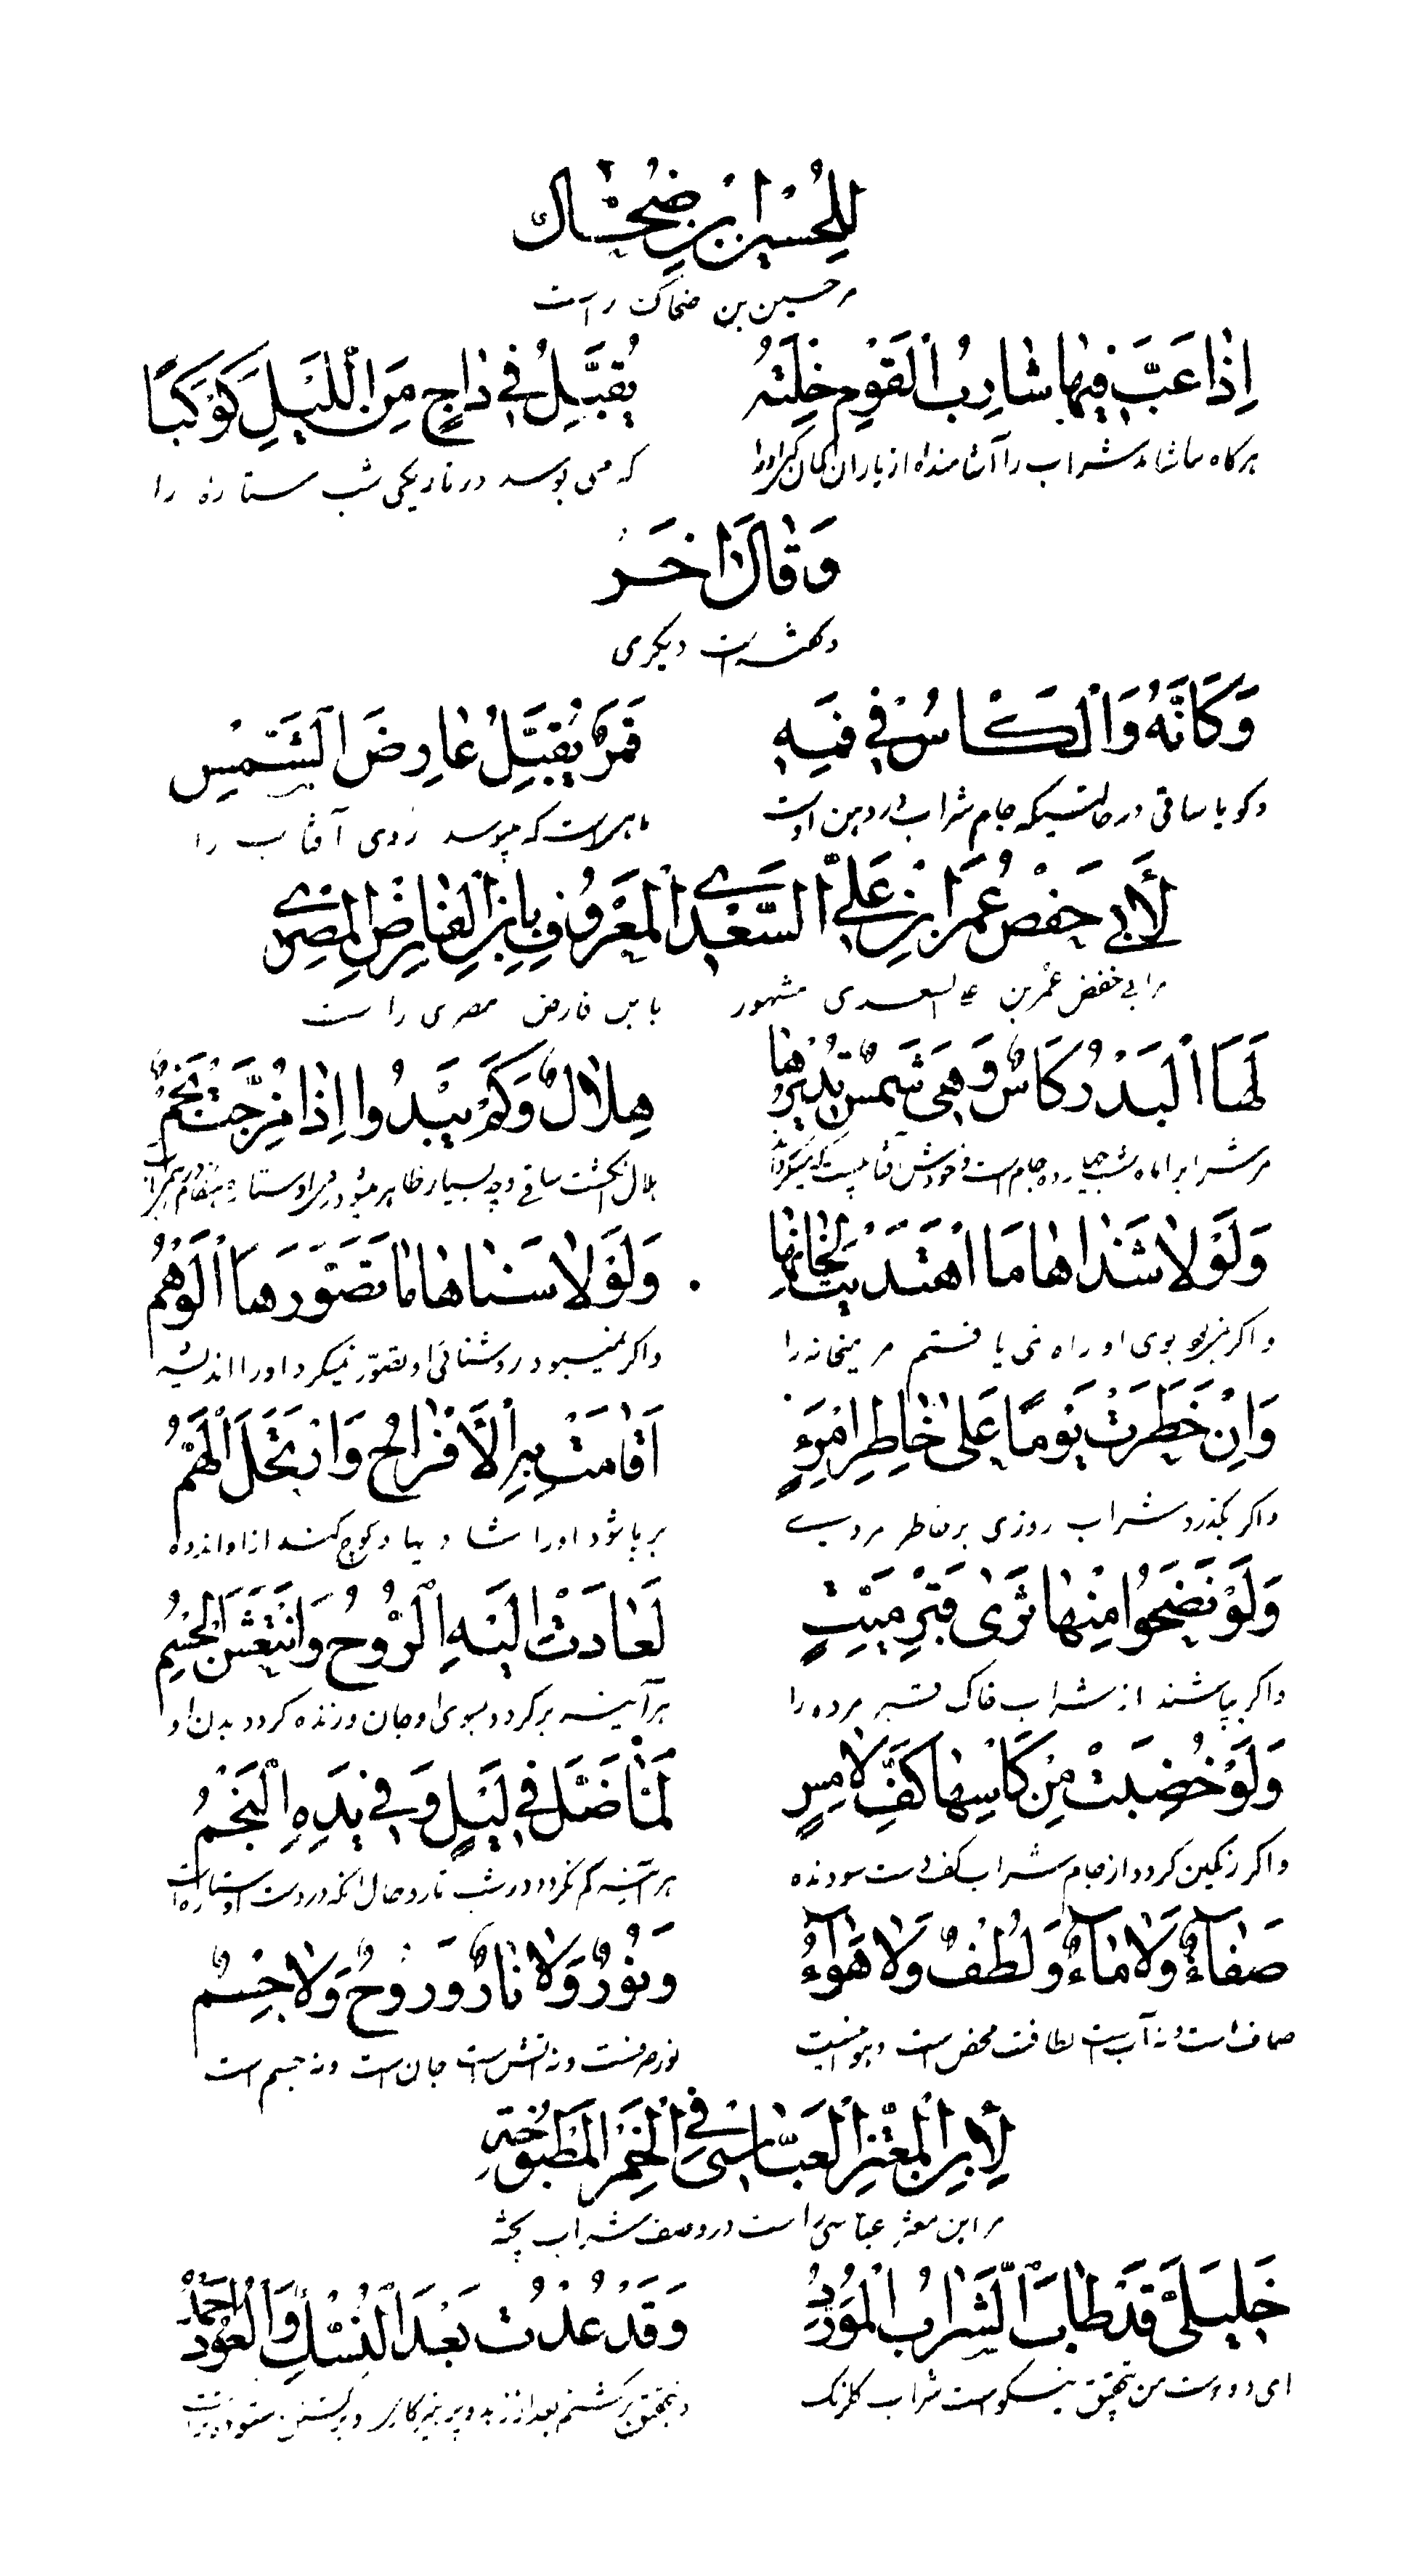 لِلْحُسَیْنِ ابْنِ ضُحّٰاك
مر حسین بن ضحاک راست
اِذٰا عَبَّ فِیهٰا شٰارِبُ الْقَوْمِ خِلْتَهُ یُقَبِّلُ فِی دٰاجٍ مِنَ اللَّیْلِ كَوْكَبًا
هرگاه بیاشامد شراب را آشامنده از یاران گمان کنی او را که می بوسد در تاریکی شب ستاره را
وَ قٰالَ اٰخَرُ
و گفته است دیگری
وَ كَاَنَّهُ وَالْكَاسُ فِی فَمِهِ قَمَرٌ یُقَبِّلُ عٰارِضَ الشَّمْسِ
و گویا ساقی در حالتیکه جام شراب در دهن اوست ماهی است که میبوسد روی آفتاب را
لِأَبِی حَفْصٍ عُمَرَ ابْنِ عَلِیٍّ السَّعْدِیِّ الْمَعْرُوفِ بِابْنِ الْفٰارِضِ الْمِصْرِیِّ
مر ابی حفص عمر بن علی السعدی مشهور بابن فارض مصری راست
لَهَا الْبَدْرُ كَاسٌ وَ هِیَ شَمْسٌ تُدِیرُهٰا هِلٰالٌ وَ كَمْ یَبْدُوا اِذٰا مُزِجَتْ نَجْمٌ
مر شراب را ماه شب چهارده جام است و خودش آفتابیست که میگرداند هلال انگشت ساقی و چه بسیار ظاهر میشود مر او را ستاره هنگام
وَ لَوْلٰا شَذٰاهٰا مَا اهْتَدَیْتُ لِحٰانِهٰا وَ لَوْلٰا سَنٰاهٰا مٰا تَصَوَّرَهَا الْوَهْمُ
و اگر نبود بوی او راه نمی یافتم مر میخانه را و اگر نمیبود روشنائی او تصوّر نمیکرد او را اندیشه
وَ اِنْ خَطَرَتْ یَوْمًا عَلٰى خٰاطِرِ امْرِءٍ اَقٰامَتْ بِهِ الْأَفْرٰاحُ وَ ارْتَحَلَ الْهَمُّ
و اگر بگذرد شراب روزی بر خاطر مردی بر پا شود او را شادیها و کوچ کند از او اندوه
وَ لَوْ نَضَحُوا مِنْهٰا ثَرٰى قَبْرِ مَیِّتٍ لَعٰادَتْ اِلَیْهِ الرُّوحُ وَ انْتَعَشَ الْجِسْمُ
و اگر بپاشند از شراب خاک قبر مرده را هر آینه برگردد بسوی او جان و زنده گردد بدن او
وَ لَوْ خُضِبَتْ مِنْ كَاْسِهٰا كَفُّ لٰامِسٍ لَمٰا ضَلَّ فِی لَیْلٍ وَ فِی یَدِهِ النَّجْمُ
و اگر رنگین گردد از جام شراب کف دست سودنده هر آینه گم نگردد در شب تار و حال آنکه در دست او ستاره است
صَفٰآءٌ وَ لٰا مٰآءٌ وَ لُطْفٌ وَ لٰا هَوٰآءٌ وَ نُورٌ وَ لٰا نٰارٌ وَ رُوحٌ وَ لٰا جِسْمٌ
صاف است و نه آب است لطافت محض است و هوا نیست نور صرفست و نه آتش است جان است و نه جسم است
لِابْنِ الْمُعْتَزِّ الْعَبّٰاسِیِّ فِی الْخَمْرِ الْمَطْبُوخَةِ
مر ابن معتز عبّاسی راست در وصف شراب پخته
خَلِیلَیَّ قَدْ طٰابَ الشَّرٰابُ الْمُوَرَّدُ وَ قَدْ عُدْتُ بَعْدَ النُّسْكِ وَ الْعَوْدُ اَحْمَدُ
ای دو دوست من بتحقیق نیکو است شراب گلرنگ و بتحقیق برگشتم بعد از زهد و پرهیزکاری و برگشتن ستوده تر است